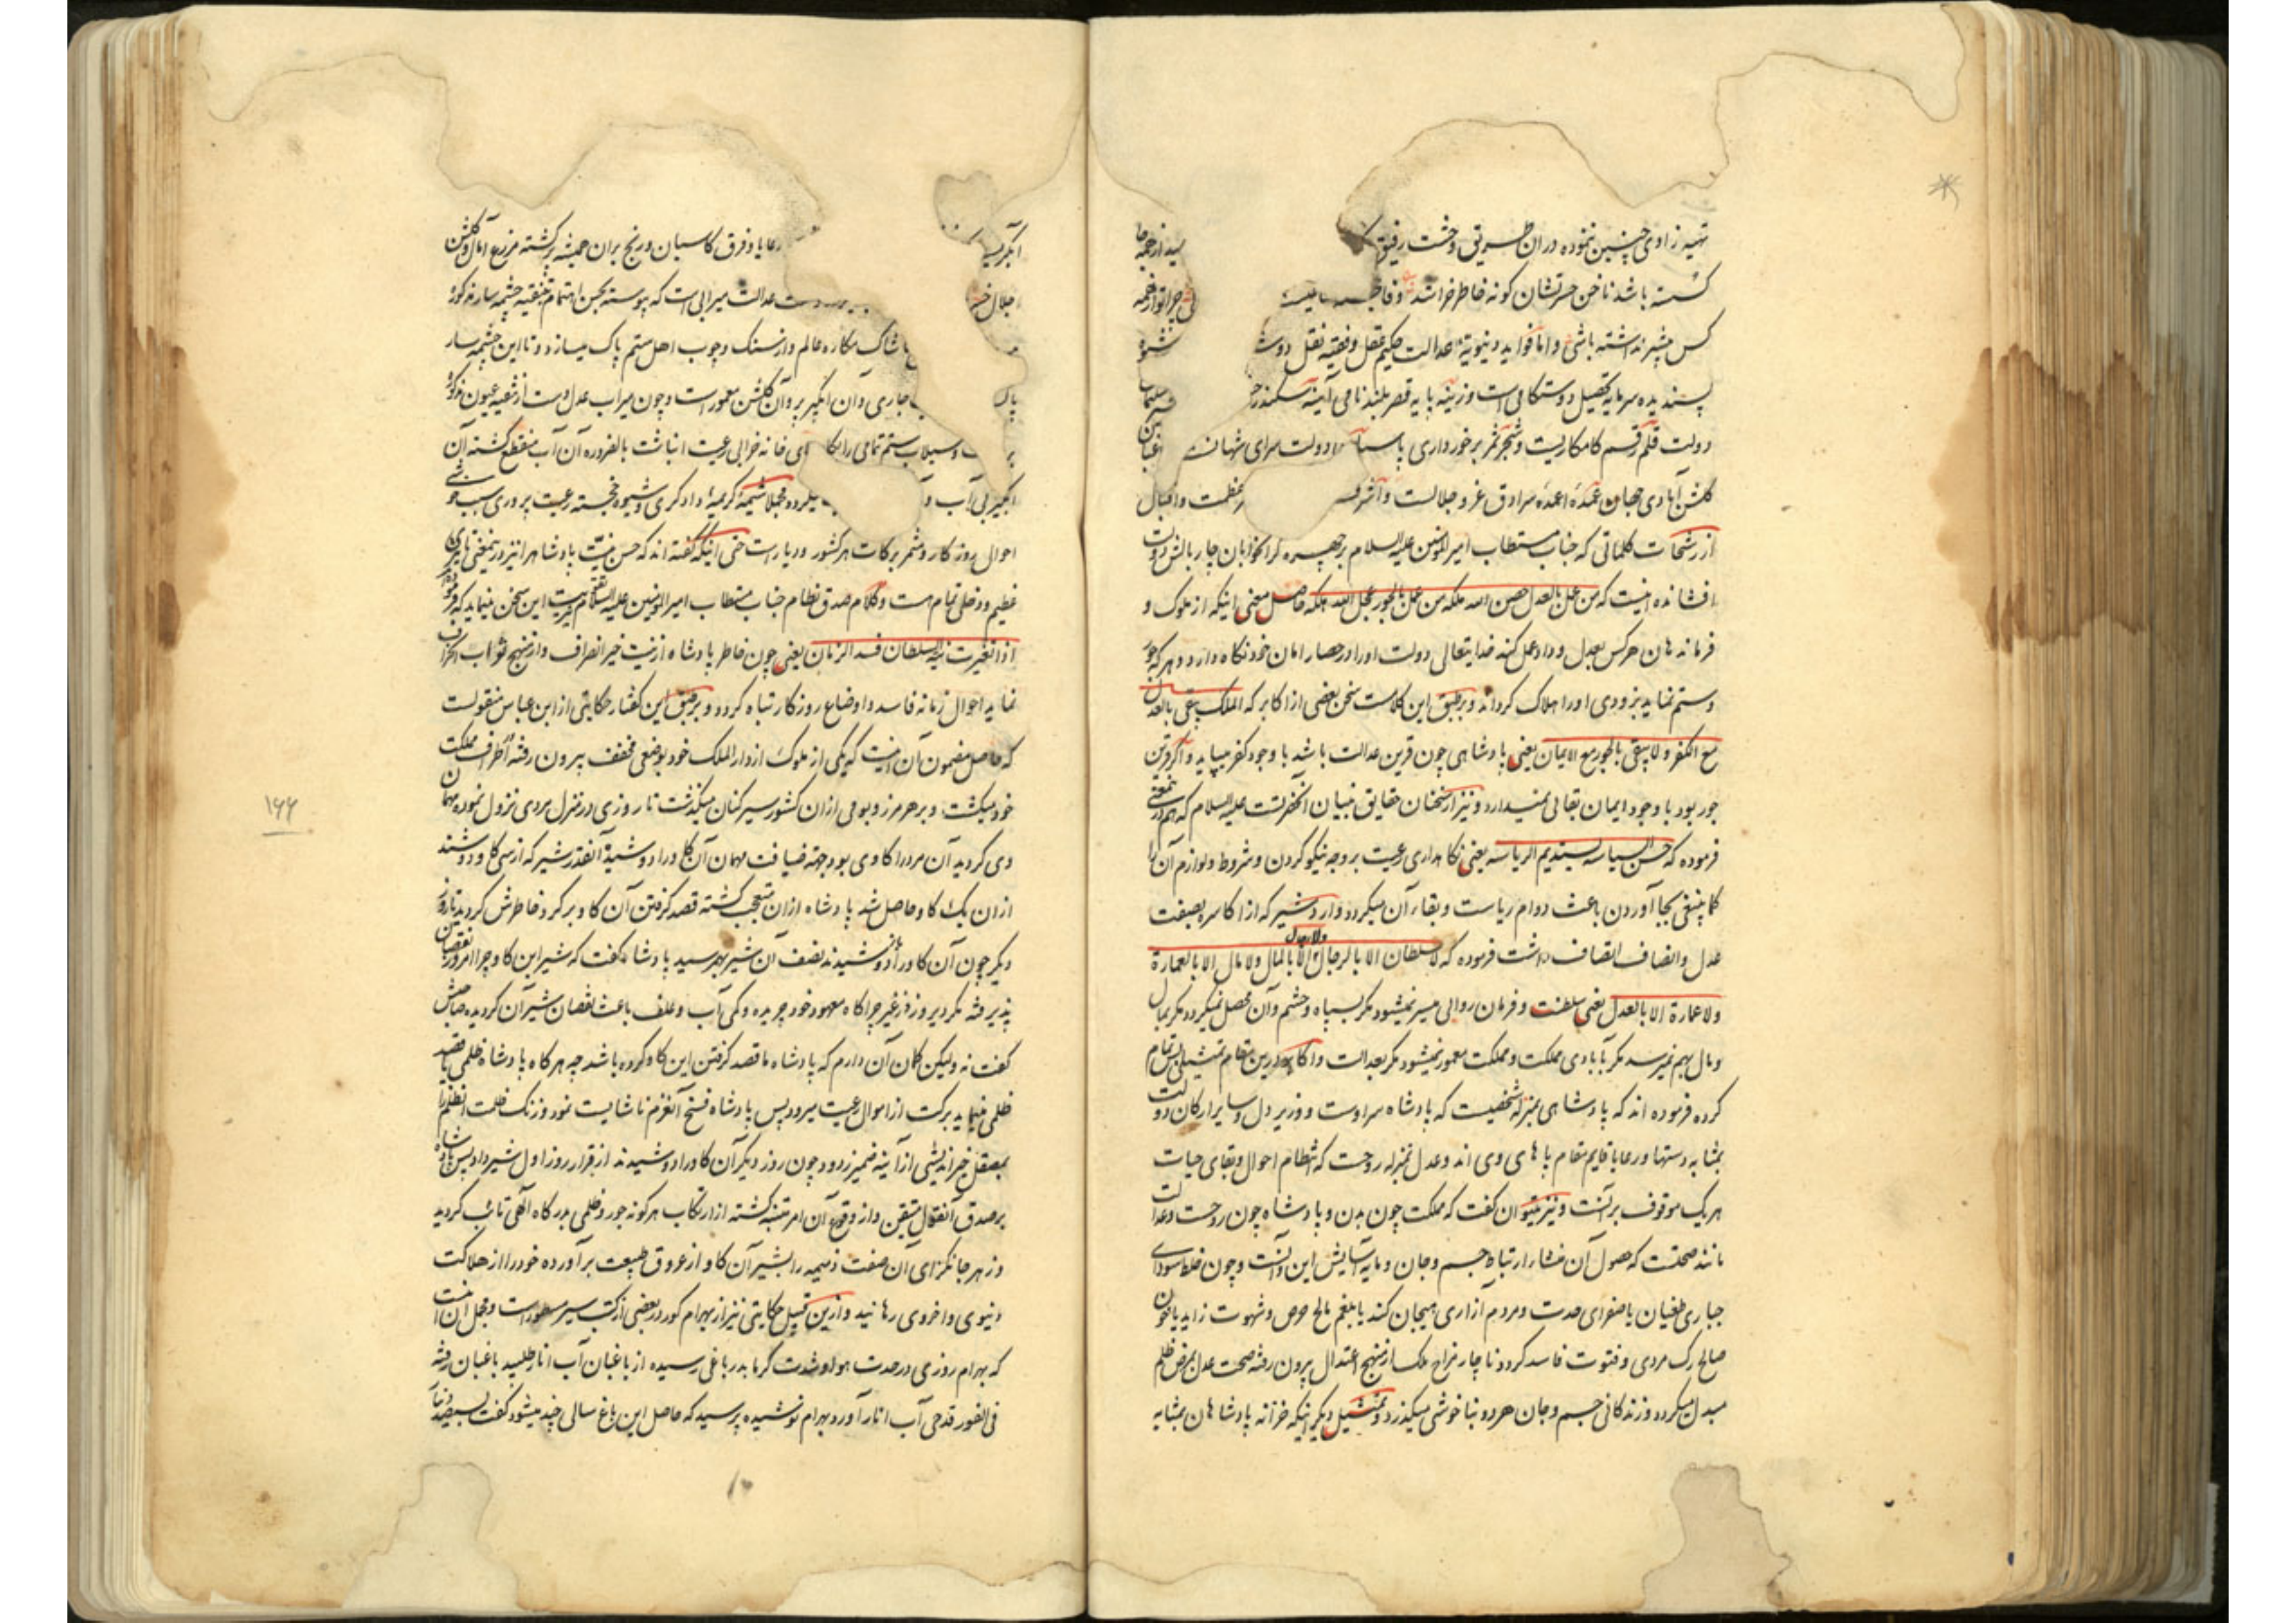 تهیه زاوی چنین نموده در آن طریق وحشت رفیق
کشته باشد ناخن حسرتشان کونه خاطر خراشد
کس بیشتر نداشته باشی و اما فواید دنیویهٔ عدالت حکیم عقل و فقیه نقل دوست
پسندیده سرمایه تحصیل دوستکامی است و زینه پایه قصر بلند نامی آینه سکندر
دولت قلم رقم کامکاریست و شجر ثمر برخورداری پاسبان دولت سرای شهان
کلشن آبادی جهان عمدهٔ اعمدهٔ سرادق عز و جلالت و اشرف عظمت و اقبال
از رشحات کلماتی که جناب مستطاب امیر المؤمنین علیه السلام بر چهره کران خوابان چار بالش دولت
افشانده اینست که من عمل بالعدل حصن الله ملکه من عمل بالجور عجل الله هلکه حاصل معنی اینکه از ملوک و
فرماندهان هر کس بعدل و داد عمل کند خدایتعالی دولت او را در حصار امان خود نکاه دارد و هر که جور
و ستم نماید بزودی او را هلاک کرداند و برطبق این کلامست سخن بعضی از اکابر که الملک یبقی بالعدل
مع الکفر و لا یبقی بالجور مع الایمان یعنی پادشاهی چون قرین عدالت باشد با وجود کفر میپاید و اکر قرین
جور بود با وجود ایمان بقائی نمیدارد و نیز از سخنان حقایق بنیان آنحضرتست علیه السلام که هم در اینمعنی
فرموده که حسن السیاسه یستدیم الریاسه یعنی نکاهداری رعیت بر وجه نیکو کردن و شروط و لوازم آن را
کما ینبغی بجا آوردن باعث دوام ریاست و بقاء آن میکردد و اردشیر که از اکاسره بصفت
عدل و انصاف اتصاف داشت فرموده که لا سلطان الا بالرجال و لا رجال الا بالمال و لا مال الا بالعمارة
و لا عمارة الا بالعدل یعنی سلطنت و فرمان روائی میسر نمیشود مکر بسپاه و حشم و آن محصل نمیکردد مکر بمال
و مال بهم نمیرسد مکر بآبادی مملکت و مملکت معمور نمیشود مکر بعدالت و اکابر در این مقام تمثیلی تمام
کرده فرموده اند که پادشاهی بمنزله شخصیست که پادشاه سر اوست و وزیر دل و سایر ارکان دولت
بمثابه دستها و رعایا قایم مقام پاهای وی اند و عدل بمنزله روحست که انتظام احوال و بقای حیات
هر یک موقوف بر آنست و نیز میتوان کفت که مملکت چون بدن و پادشاه چون روحست و عدالت
مانند صحتست که حصول آن منشا ارتباط جسم و جان و مایه آسایش این و آنست و چون خلط سودای
جباری طغیان یا صفرای حدت و مردم آزاری هیجان کند یا بلغم مالح حرص و شهوت زاید یا خون
صالح رک مردی و فتوت فاسد کردد ناچار مزاج ملک از منهج اعتدال بیرون رفته صحت عدل بمرض ظلم
مبدل میکردد و زندکانی جسم و جان هر دو بناخوشی میکذرد و تمثیل دیکر اینکه خزانه پادشاهان بمثابه
رعایا و فرق کاسبان و رنج بران همیشه برکشته مزرع آمال و کلشن
عدالت میرابی است که پیوسته بحسن اهتمام تنقیه چشمه سار مذکور
خاشاک مکاره عالم و از سنک و چوب اهل ستم پاک میسازد و تا این چشمه سار
جاری و آن آبکیر پر و آن کلشن معمور است و چون میراب عدل دست از تنقیه عیون مذکور
و سیلاب ستم تمامی را بکا خانه خرابی رعیت انباشت بالضروره آن آب منقطع کشته آن
آبکیر بی آب و میکردد مجملا شیمهٔ کریمهٔ دادکری و شیوه خجسته رعیت پروری سبب خوشی
احوال روزکار و مثمر برکات هر کشور و دیار است حتی اینکه کفته اند که حسن نیت پادشاه را نیز در اینمعنی تأثیری
عظیم و دخلی تمام هست و کلام صدق نظام جناب مستطاب امیر المؤمنین علیه السلام تقویت این سخن مینماید که فرموده
اذا تغیرت نیة السلطان فسد الزمان یعنی چون خاطر پادشاه از نیت خیر انصراف و از منهج ثواب انحراف
نماید احوال زمانه فاسد و اوضاع روزکار تباه کردد و بر طبق این کفتار حکایتی از ابن عباس منقولست
که حاصل مضمون آن اینست که یکی از ملوک از دار الملک خود بوضعی مخفف بیرون رفته در اطراف مملکت
خود میکشت و بر هر مرز و بومی از آن کشور سیر کنان میکذشت تا روزی در منزل مردی نزول نموده مهمان
وی کردید آن مرد را کاوی بود جهته ضیافت مهمان آن کاو را دوشید آنقدر شیر که از سی کاو دوشند
از آن یک کاو حاصل شد پادشاه از آن متعجب کشته قصد کرفتن آن کاو بر کرد خاطرش کردید تا روز
دیکر چون آن کاو را دوشیدند نصف آن شیر بهم رسید پادشاه کفت که شیر این کاو چرا امروز نقصان
پذیرفته مکر دیروز از غیر چراکاه معهود خود چریده و کمی آب و علف باعث نقصان شیر آن کردیده صاحبش
کفت نه ولیکن کمان آن دارم که پادشاه ما قصد کرفتن این کاو کرده باشد چه هر کاه پادشاه ظلمی یا قصد
ظلمی مینماید برکت از اموال رعیت میرود پس پادشاه فسخ آن عزم ناشایست نمود و زنک ظلمت آن ظلم را
بصیقل خیر اندیشی از آینه ضمیر زدود چون روز دیکر آن کاو را دوشیدند از قرار روز اول شیر داد پس پادشاه
بر صدق آنمقال متیقن و از وقوع آن امر متنبه کشته از ارتکاب هر کونه جور و ظلمی بدرکاه آلهی تائب کردید
و زهر جانکزای آن صفت ذمیمه را بشیر آن کاو از عروق طبیعت بر آورده خود را از هلاکت
دنیوی و اخروی رهانید و از این قبیل حکایتی نیز از بهرام کور در بعضی از کتب سیر مسطور است و مجمل آن اینست
که بهرام روزی در حدت هوا و شدت کرما بدر باغی رسیده از باغبان آب انار طلبید باغبان رفته
فی الفور قدحی آب انار آورد بهرام نوشیده پرسید که حاصل این باغ سالی چند میشود کفت سیصد دینار
۱۶۶